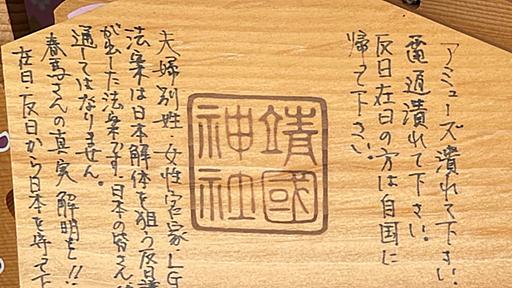 アミューズ潰れて下さい。
電通潰れて下さい。
反日在日の方は自国に
帰って下さい。
靖國
神社
夫婦別姓 女性宮家、LG
法案は日本解体を狙う反日議
が出した法案です。日本の皆さん
通してはなりません。
春馬さんの真実解明を!!
在日・反日から日本を守って下